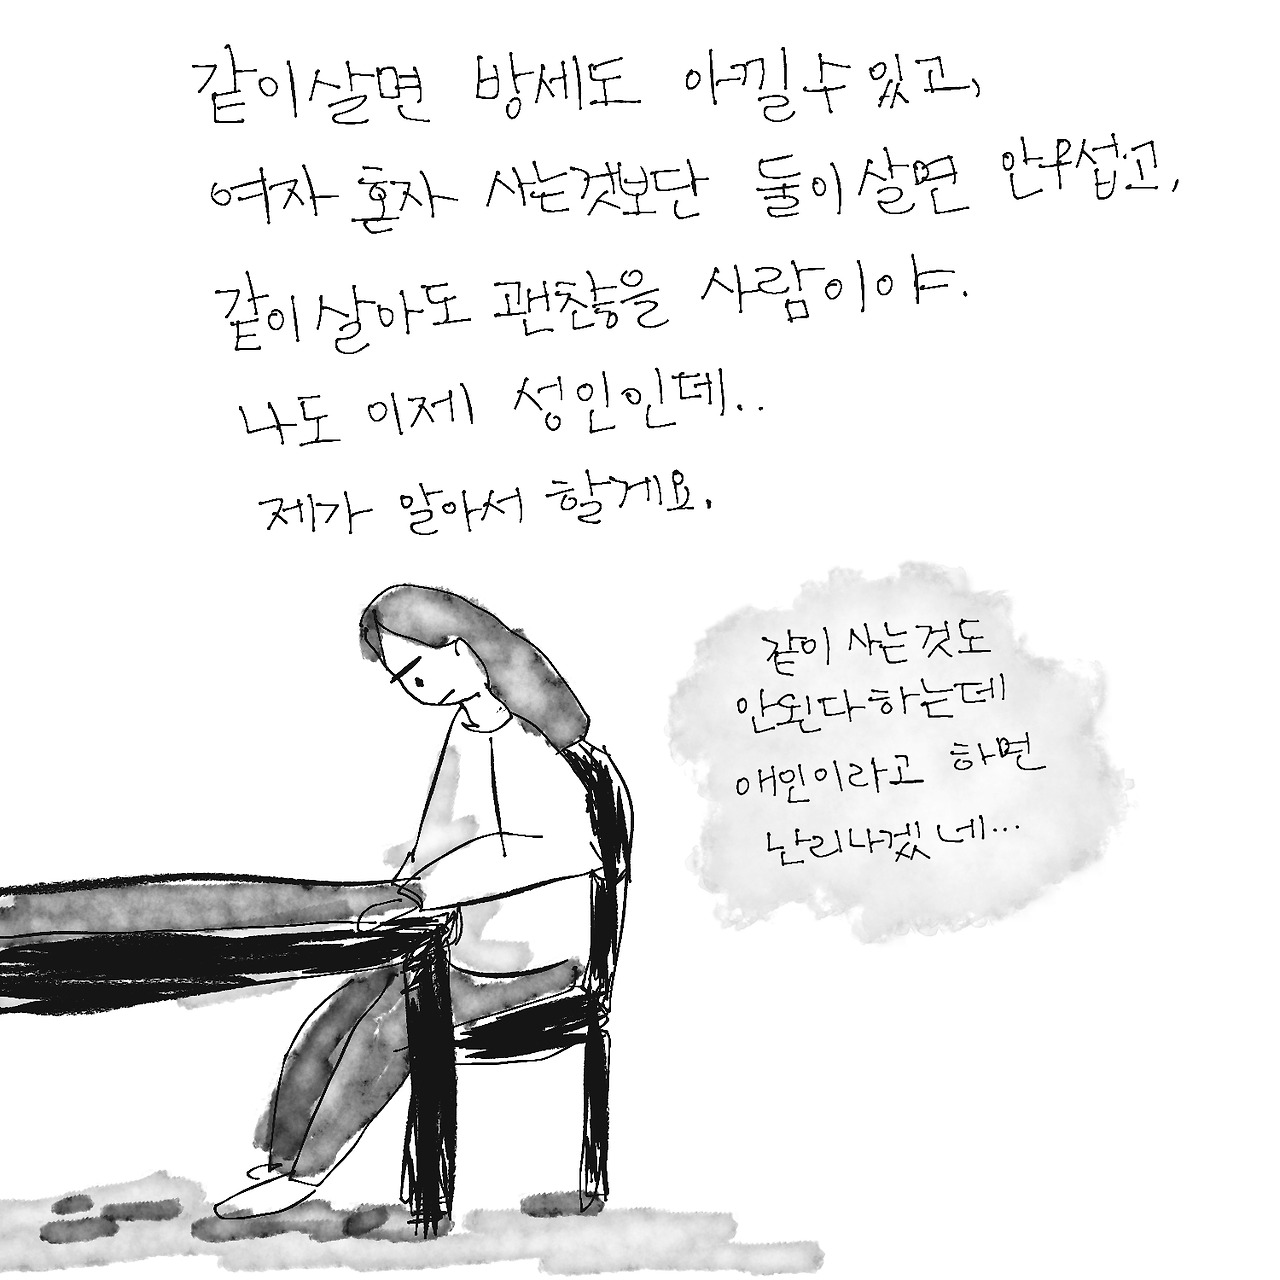 같이살면 방세도 아낄수있고,
여자 혼자 사는것보단 둘이살면 안우섭고,
같이살아도 괜찮을 사람이야.
나도 이제 성인인데..
제가 알아서 할게요.
같이 사는것도
안된다하는데
애인이라고 하면
난리나겠네...